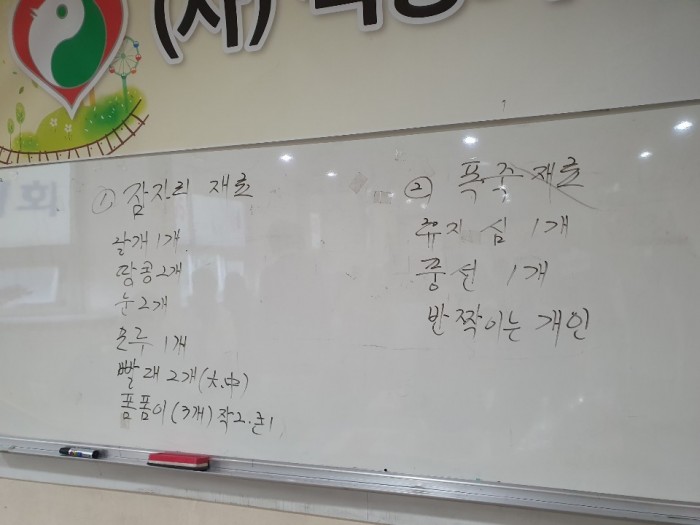 (사)
① 잠자리 재료
날개 1개
땅콩 2개
눈 2개
2개(大.中)
폼폼이 (3개) 작2.큰1
② 폭죽 재료
휴지 심 1개
풍선 1개
반짝이는 개인